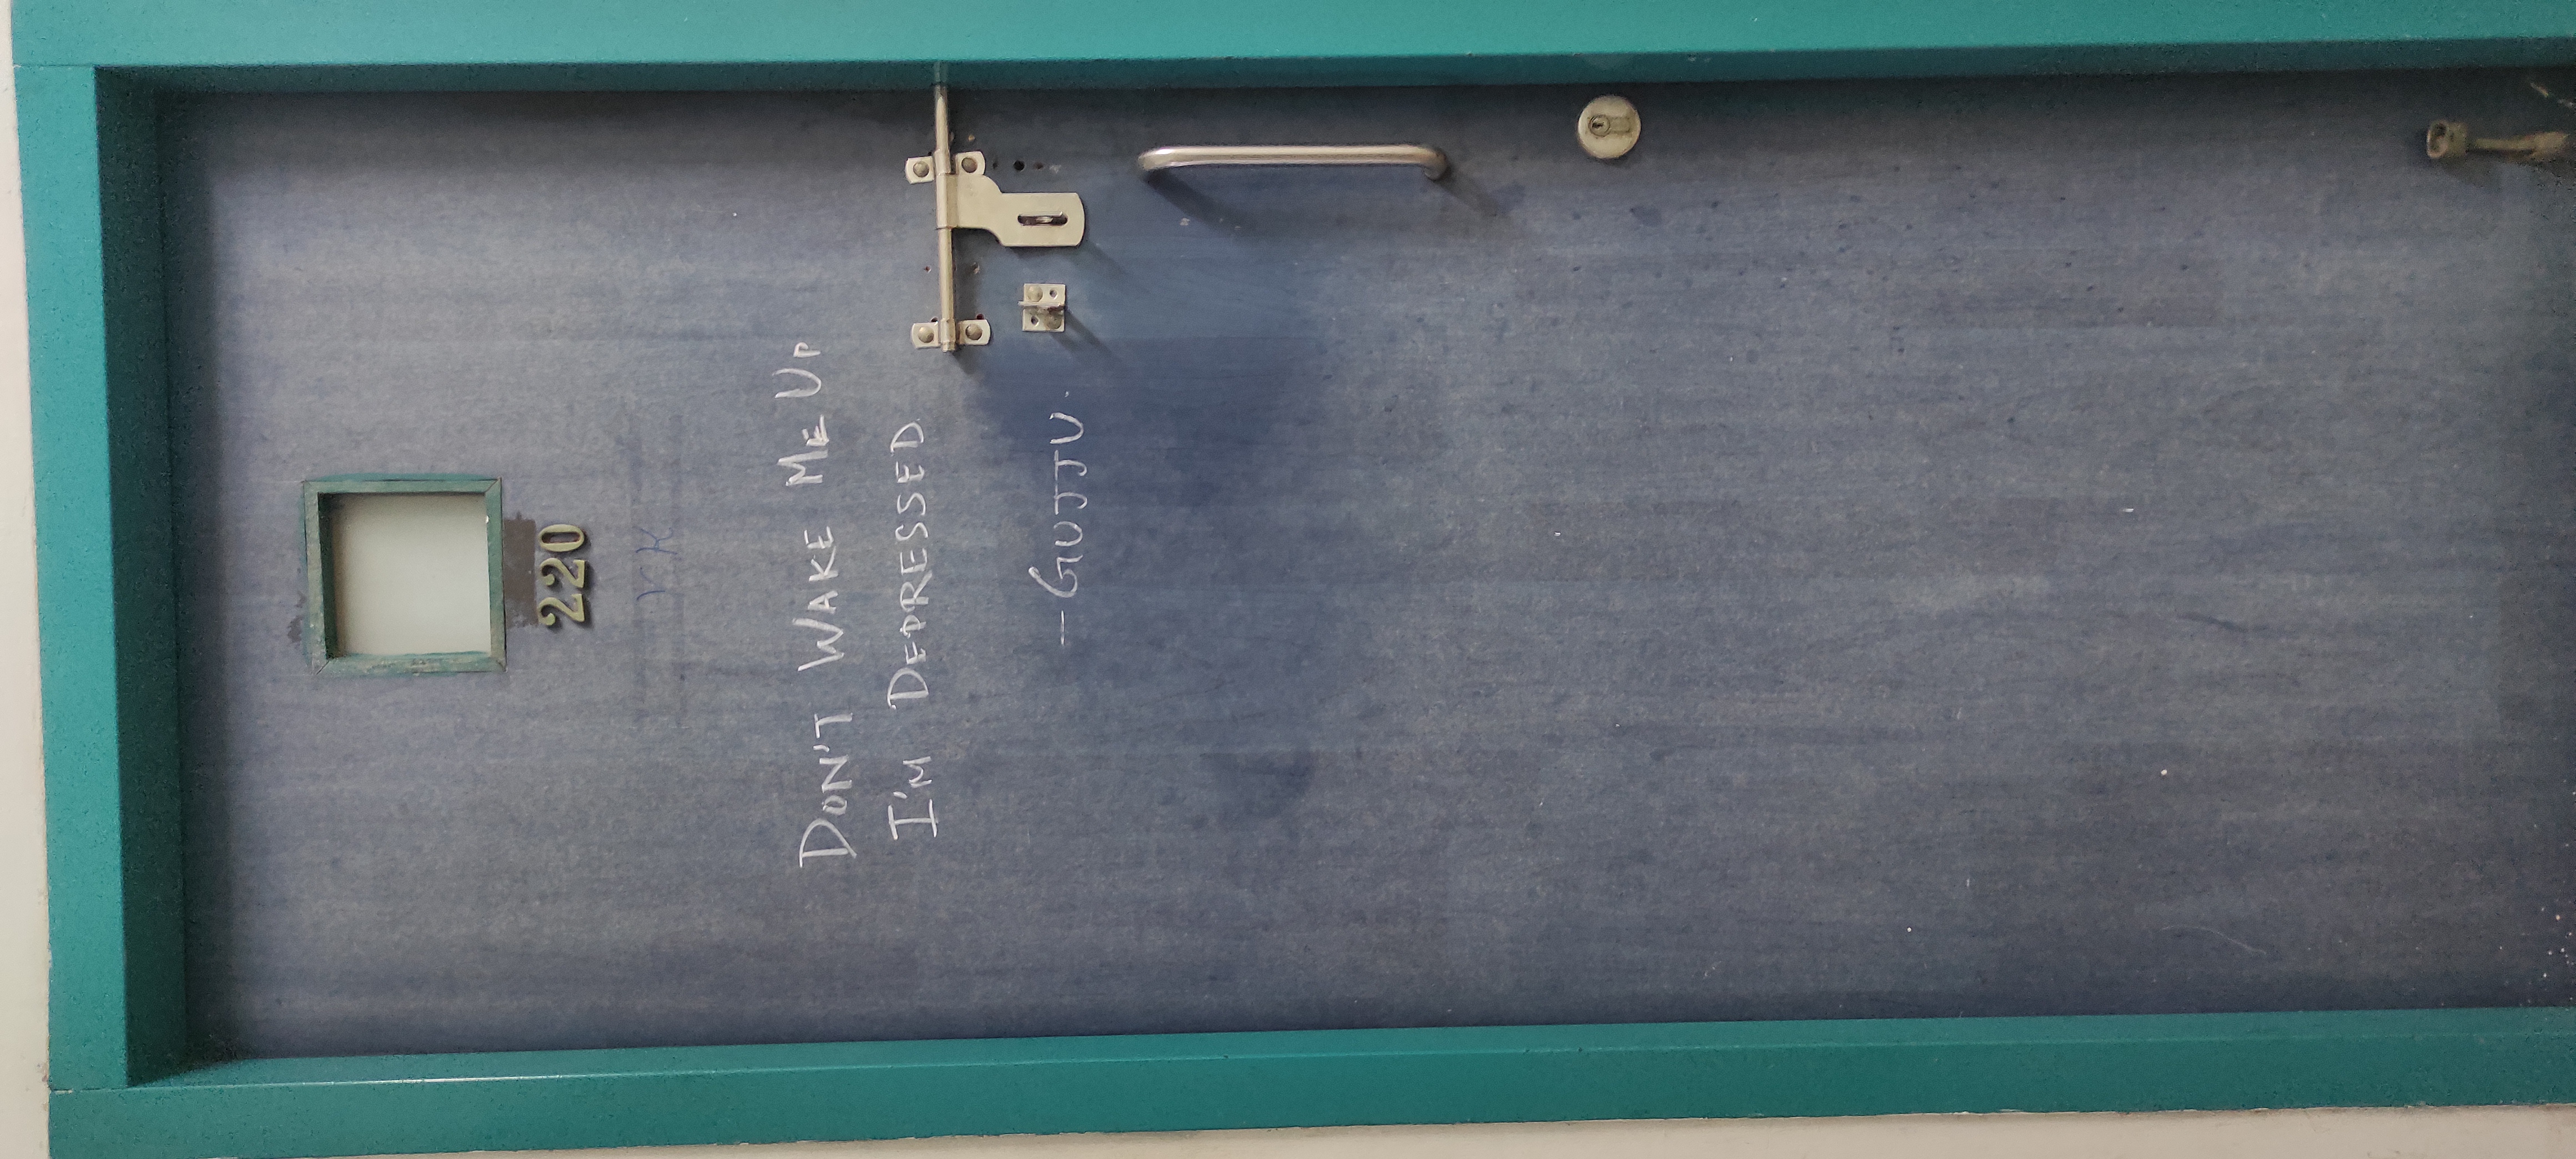 220
VK
DON'T WAKE ME UP
I'M DEPRESSED
-GUJJU.